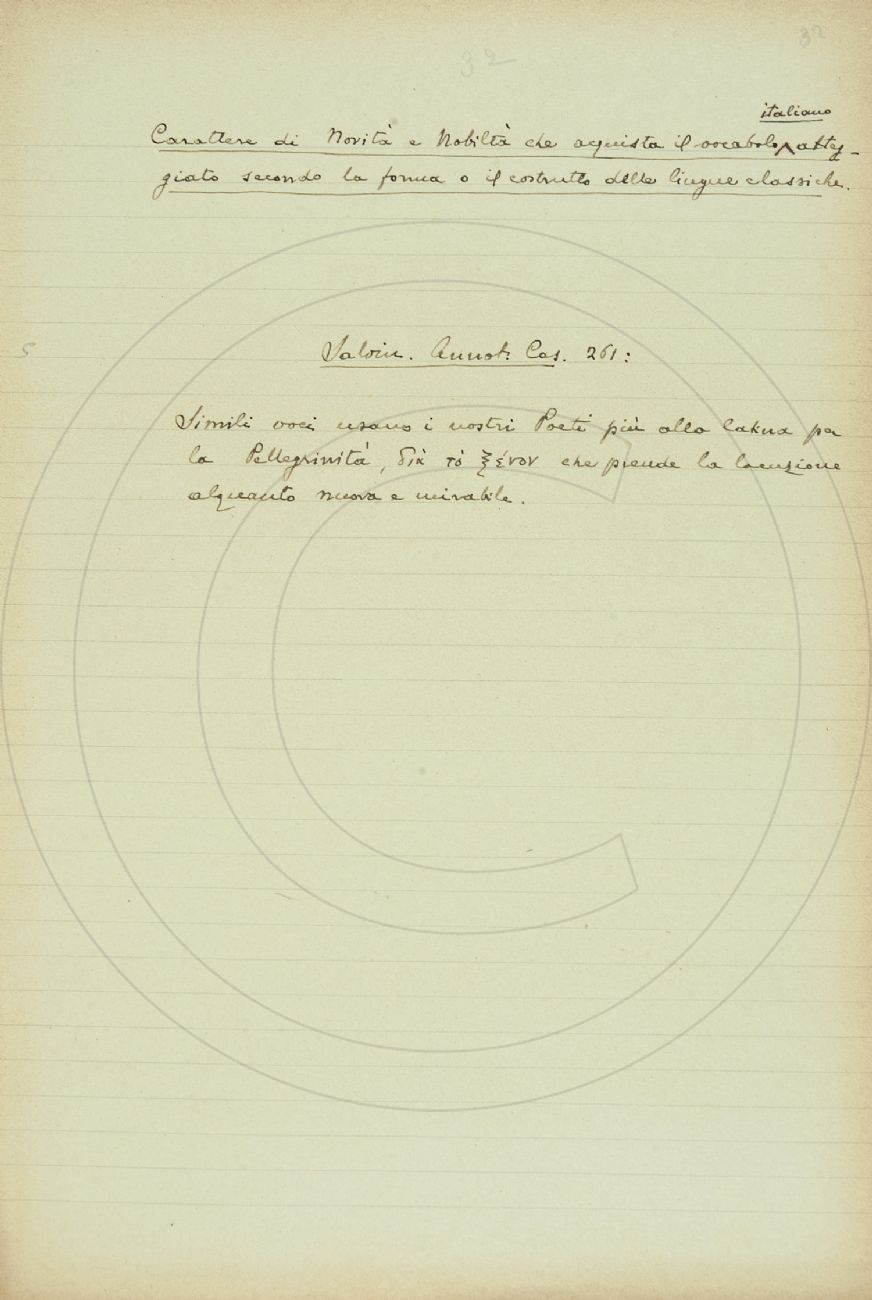 32
32
italiano
Carattere di Novità e Nobiltà che acquista il vocabolo ∧ atteg-
giato secondo la forma o il costrutto delle lingue classiche.
5
Salvin. Annot. Cas. 261:
Simili voci usano i nostri Poeti più alla latina per
la Pellegrinità, διὰ τὸ ξένον che prende la locuzione
alquanto nuova e mirabile.